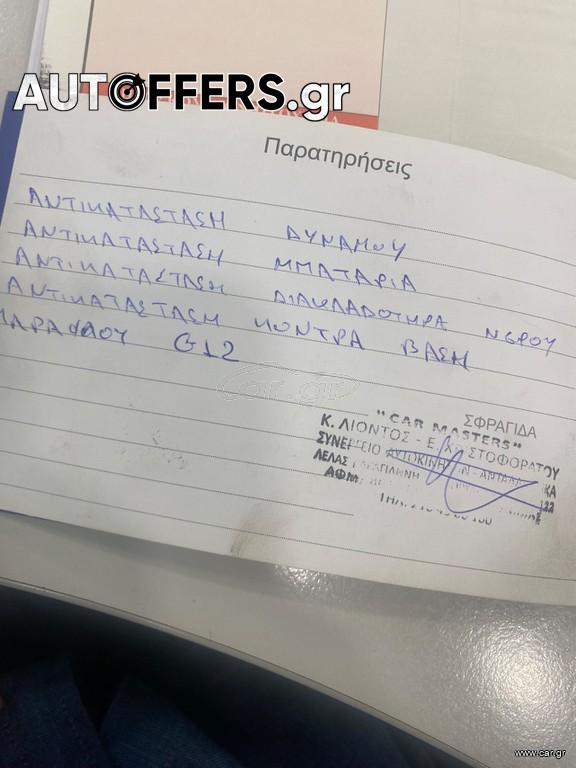 AUTOFFERS.gr
Παρατηρήσεις
ΑΝΤΙΚΑΤΑΣΤΑΣΗ ΔΥΝΑΜΟΥ
ΑΝΤΙΚΑΤΑΣΤΑΣΗ ΜΠΑΤΑΡΙΑ
ΑΝΤΙΚΑΤΑΣΤΑΣΗ ΔΙΑΚΛΑΔΩΤΗΡΑ ΝΕΡΟΥ
ΑΝΤΙΚΑΤΑΣΤΑΣΗ ΚΟΝΤΡΑ ΒΑΣΗ
G12
car.gr
ΣΦΡΑΓΙΔΑ
"CAR MASTERS"
Κ. ΛΙΟΝΤΟΣ - Ε. ΧΡΙΣΤΟΦΟΡΑΤΟΥ
ΣΥΝΕΡΓΕΙΟ ΑΥΤΟΚΙΝΗΤΩΝ - ΑΝΤΑΛΛ
ΛΕΛΑΣ
ΑΦΜ
ΤΗΛ.
www.car.gr